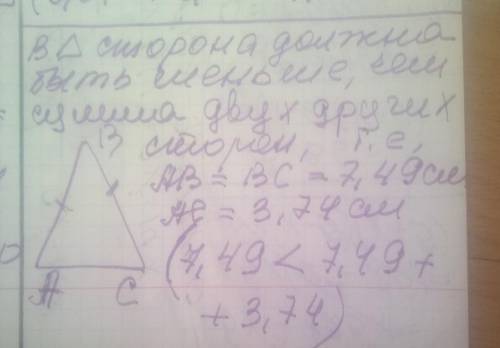 В △ сторона должна
быть меньше, чем
сумма двух других
сторон, т.е,
B
AB = BC = 7,49 см
AC = 3,74 см
(7,49 < 7,49 +
A C
+ 3,74)